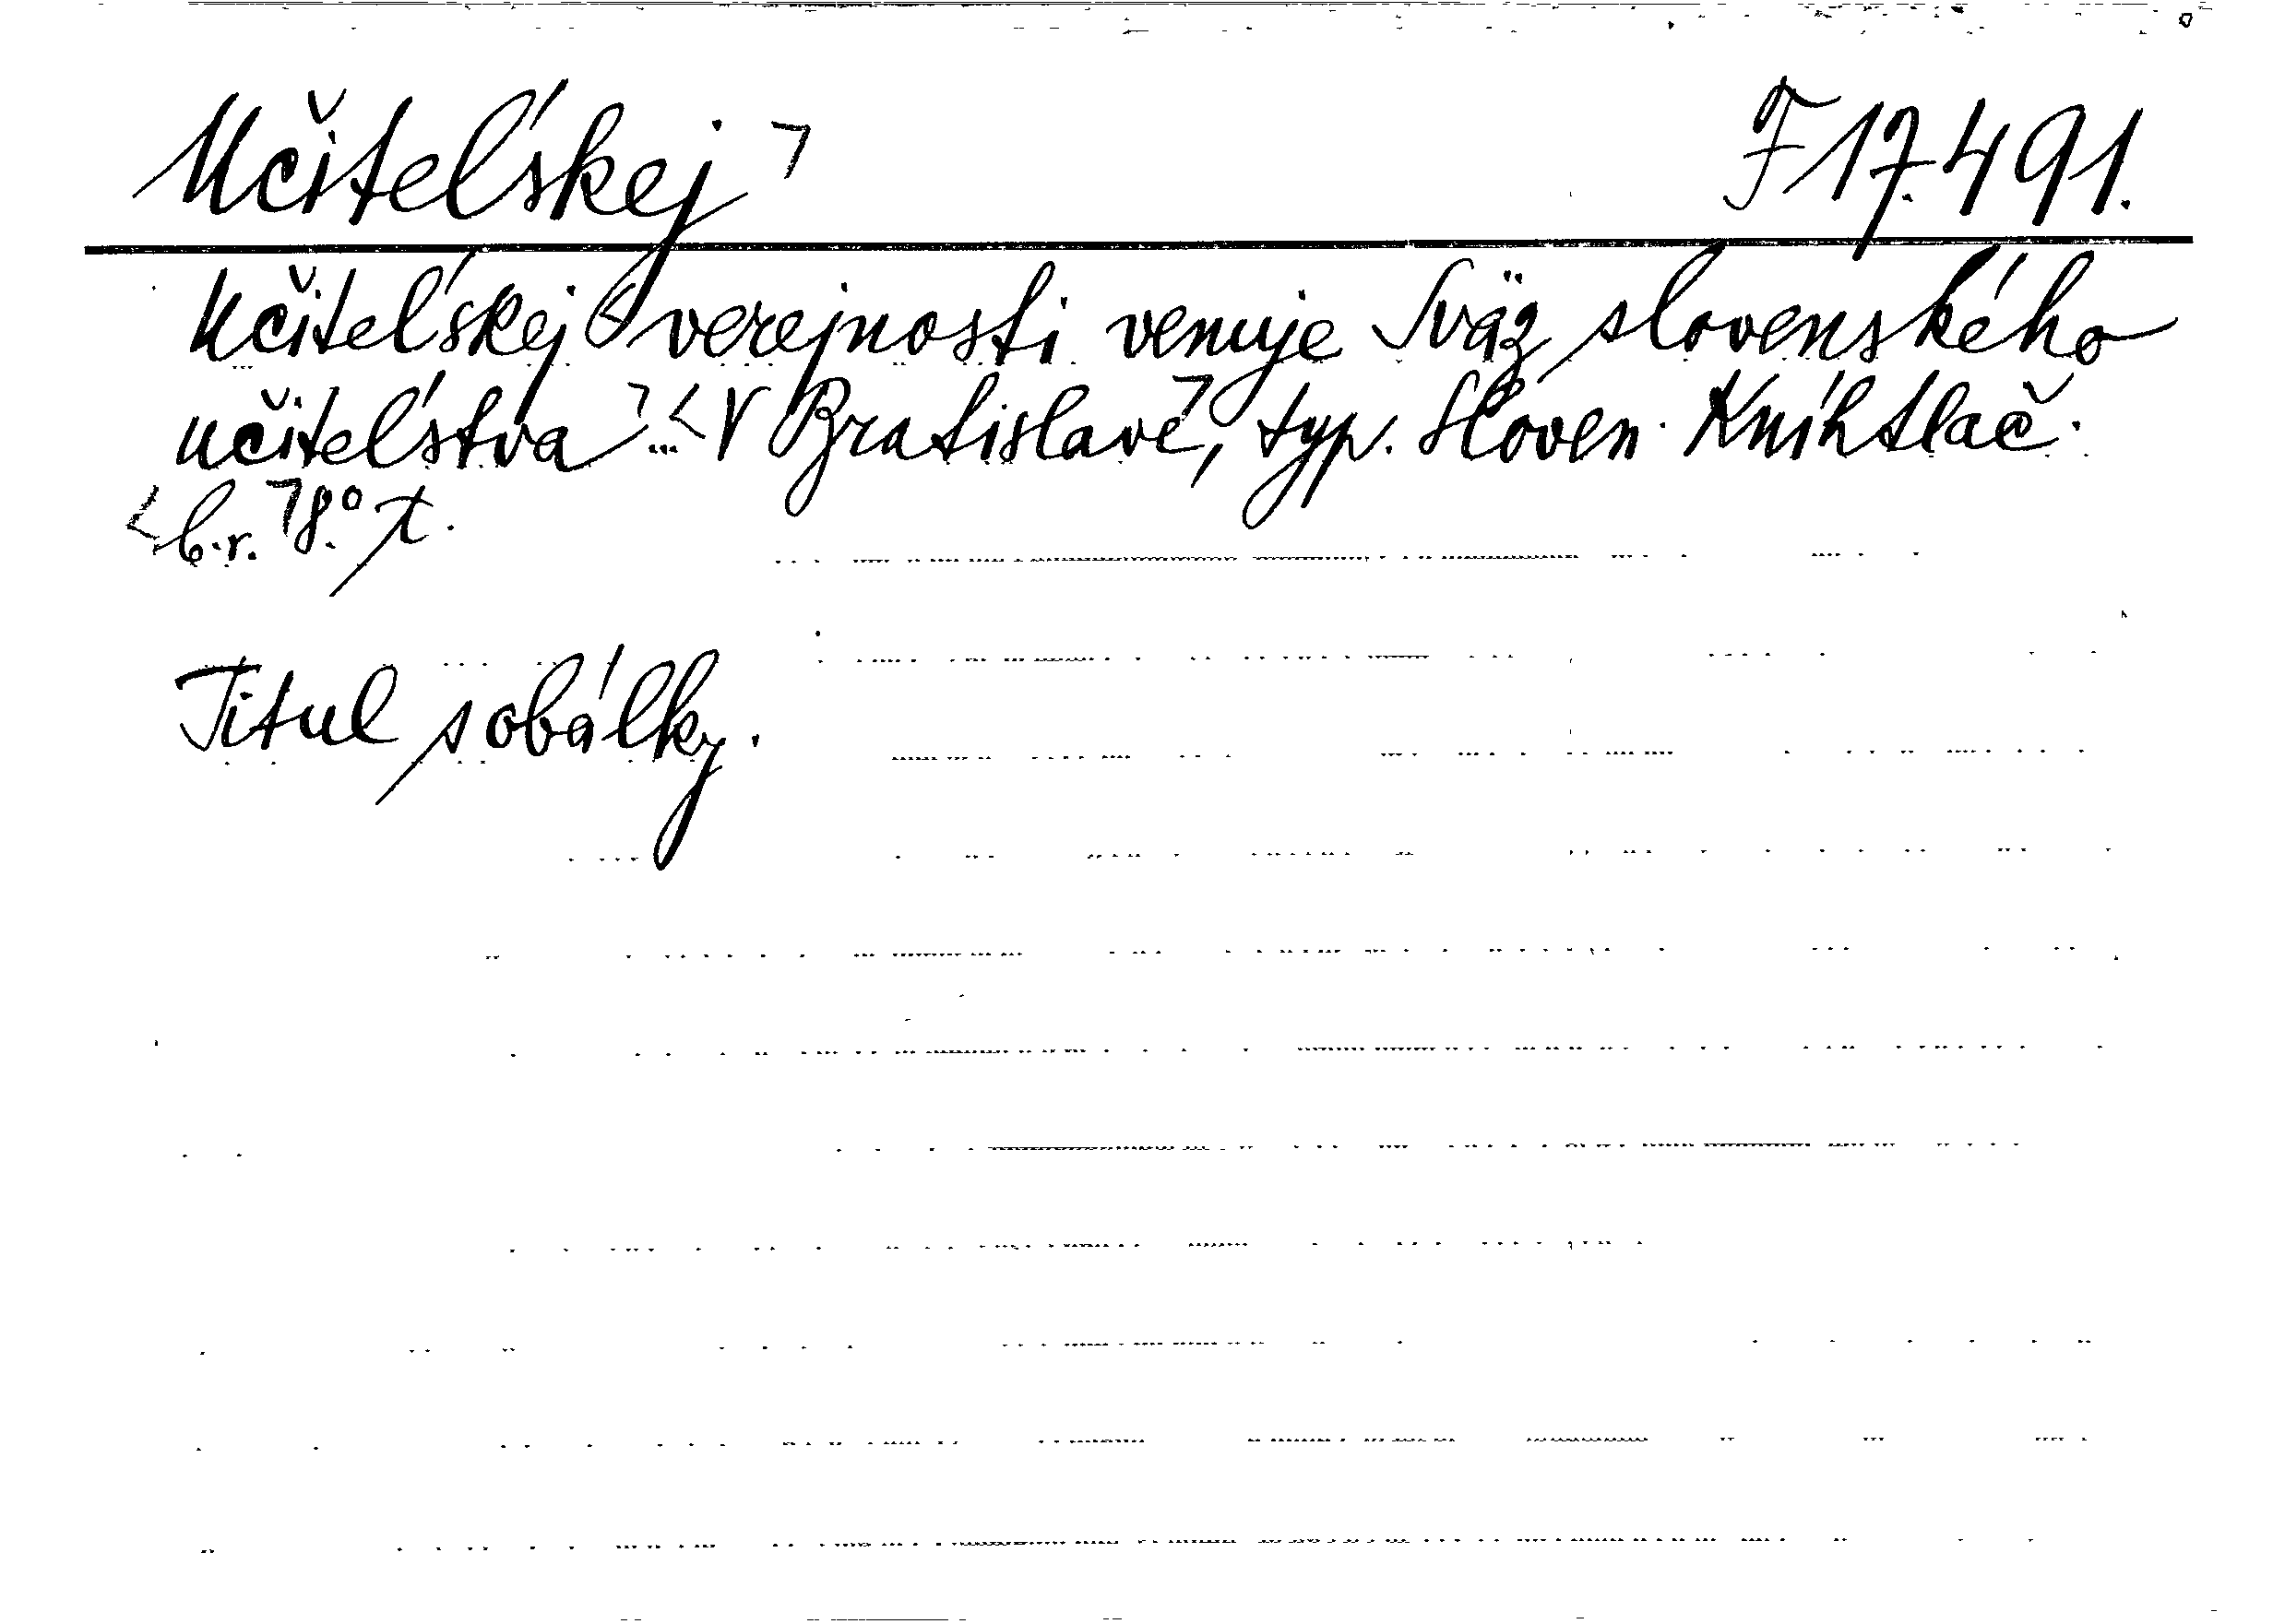 Učiteľskej F 17.491.
Učiteľskej verejnosti venuje Sväz slovenského
učiteľstva ... V Bratislavě, typ. Sloven. Kníhtlač.
b.r. 8.°
Titul s obálky.